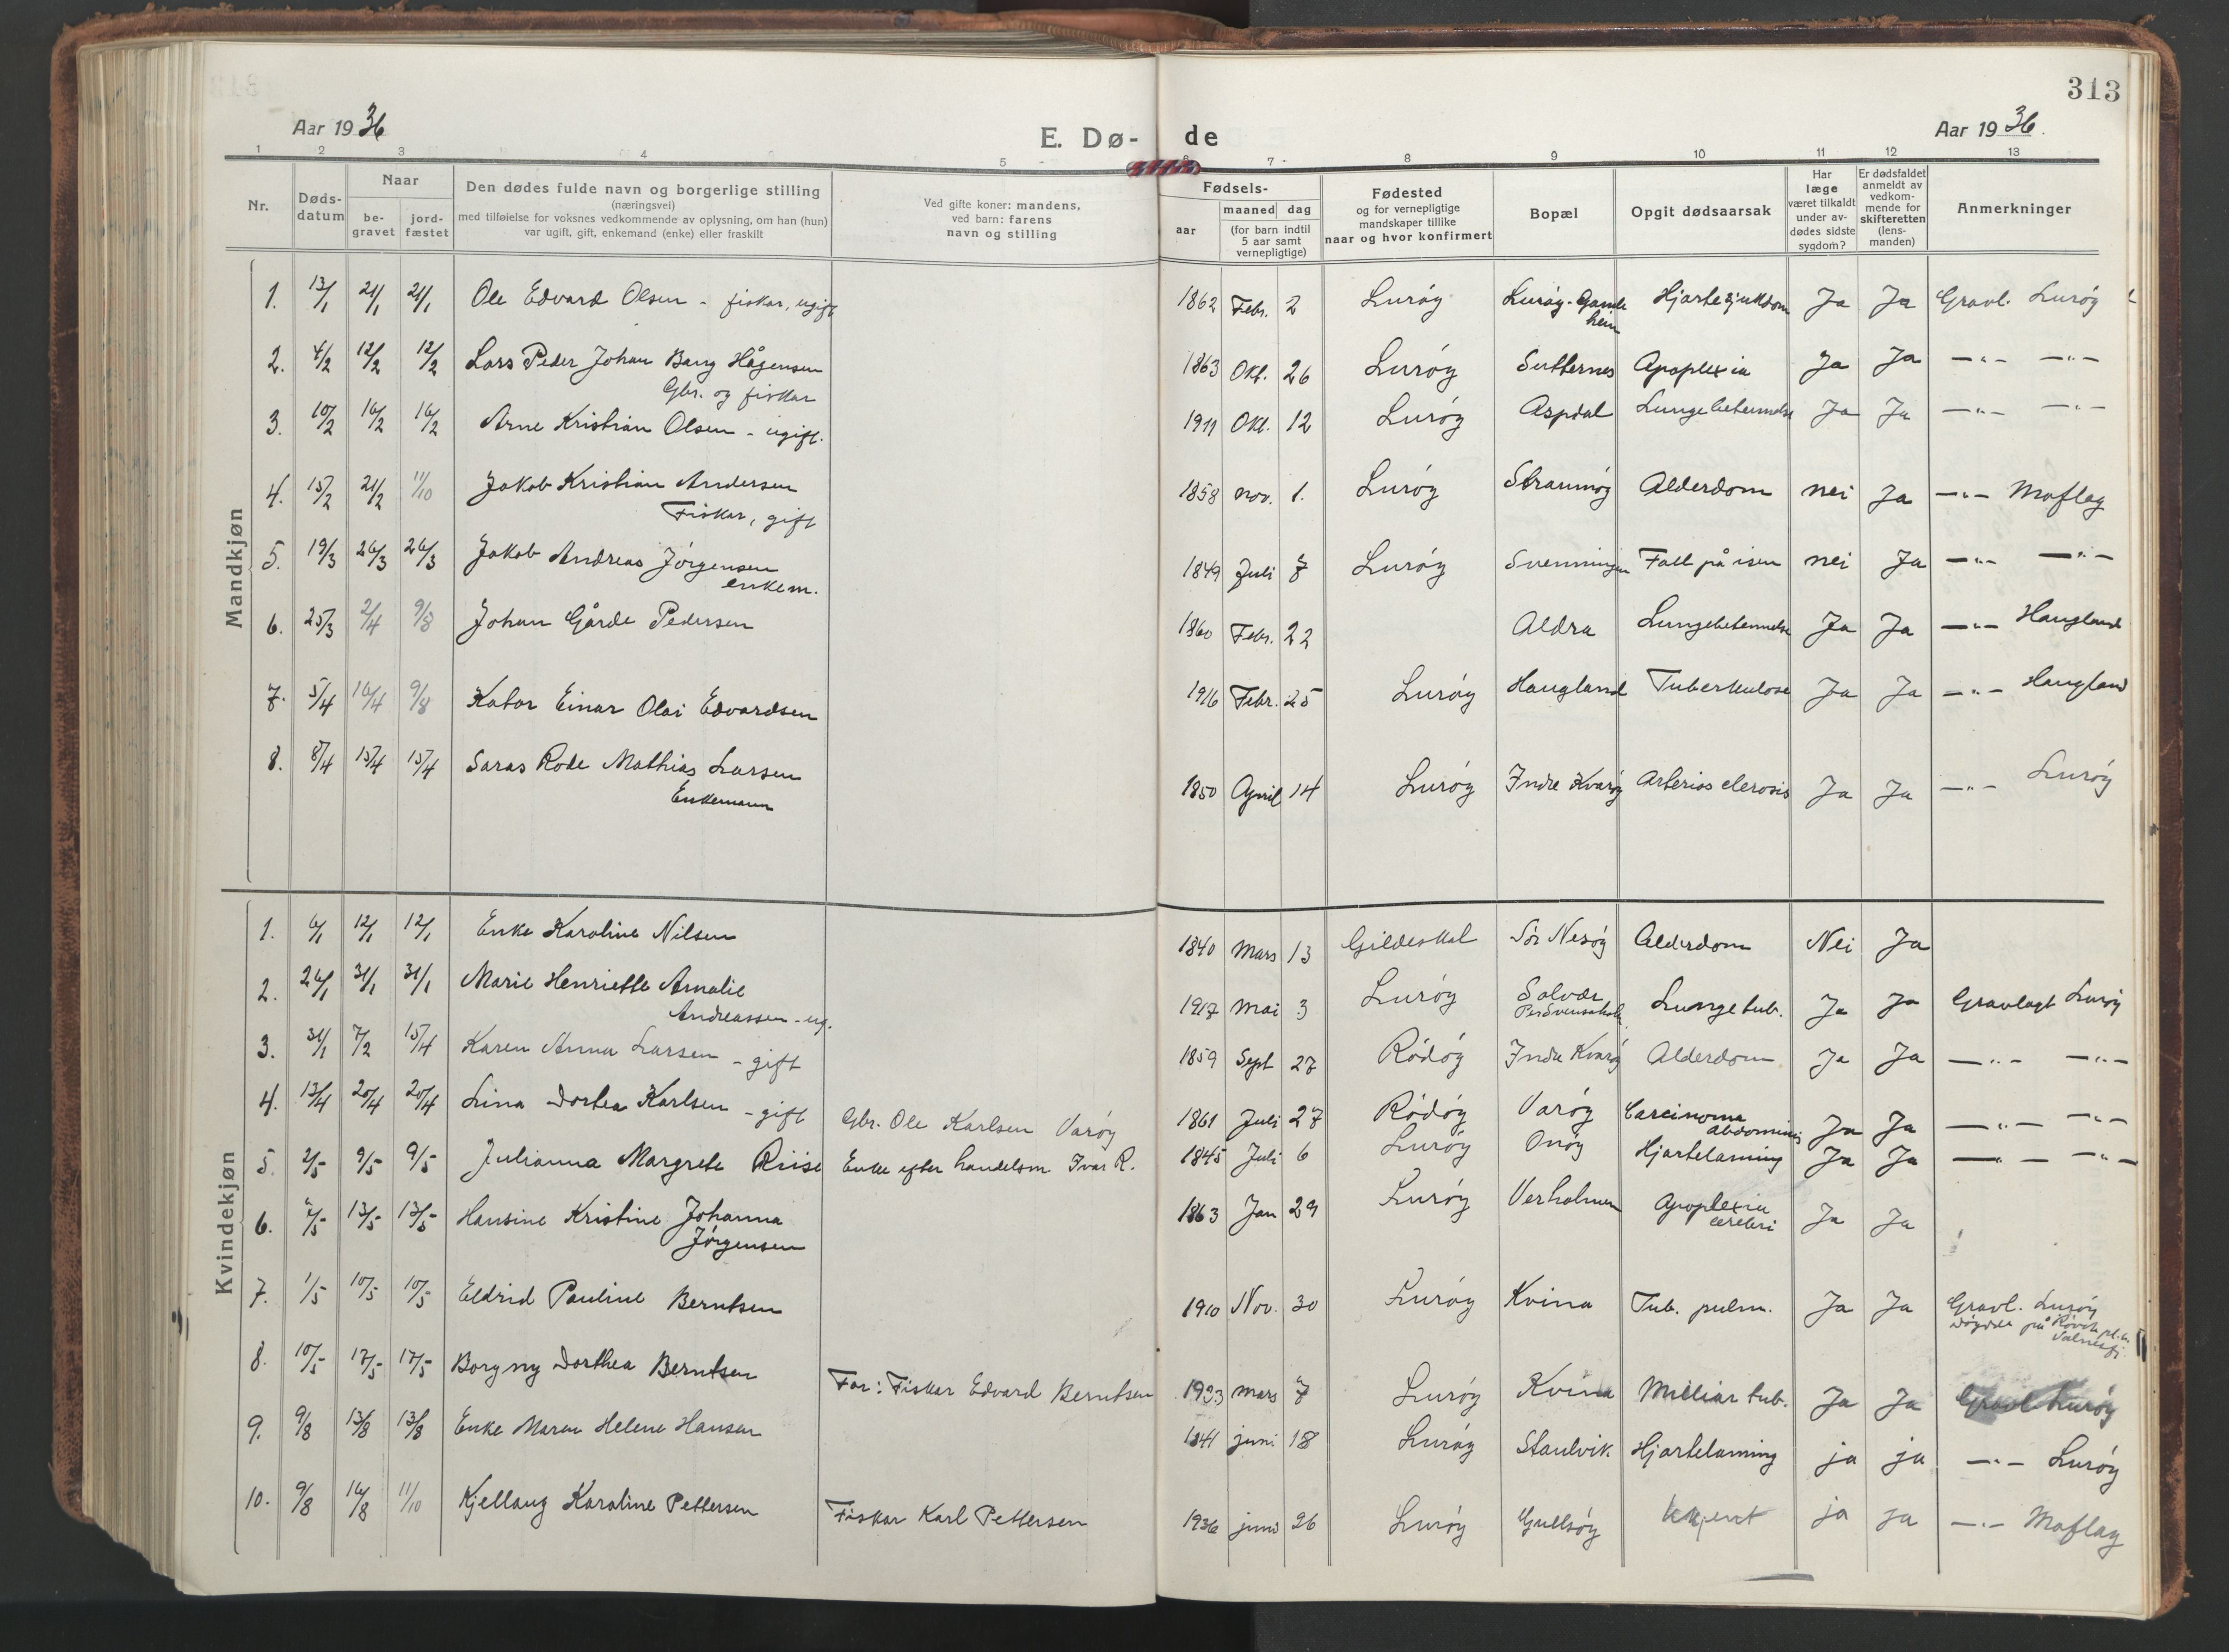 313
Aar 1936
E. Dø-
de
Aar 1936.
1 2 3 4 5 6 7 8 9 10 11 12 13
Nr.
Døds-
datum
Naar
be-
gravet
jord-
fæstet
Den dødes fulde navn og borgerlige stilling
(næringsvei)
med tilføielse for voksnes vedkommende av oplysning, om han (hun)
var ugift, gift, enkemand (enke) eller fraskilt
Ved gifte koner: mandens,
ved barn: farens
navn og stilling
Fødsels-
aar
maaned dag
(for barn indtil
5 aar samt
vernepligtige)
Fødested
og for vernepligtige
mandskaper tillike
naar og hvor konfirmert
Bopæl
Opgit dødsaarsak
Har
læge
været tilkaldt
under av-
dødes sidste
sygdom?
Er dødsfaldet
anmeldt av
vedkom-
mende for
skifteretten
(lens-
manden)
Anmerkninger
Mandkjøn
1. 13/1 21/1 21/1 Ole Edvard Olsen - fiskar, ugift 1862 Febr. 2 Lurøy Lurøy- Hjartesjukdom Ja Ja Gravl. Lurøy
2. 4/2 12/2 12/2 Lars Peder Johan Bang Hågensen 1863 Okt. 26 Lurøy Sutternes Apoplexia Ja Ja —"— —"—
Gbr. og fiskar
3. 10/2 16/2 16/2 Arne Kristian Olsen - ugift. 1911 Okt. 12 Lurøy Aspdal Lungebetennelse Ja Ja —"— —"—
4. 15/2 21/2 11/10 Jakob Kristian Andersen 1858 Nov. 1. Lurøy Straumøy Alderdom nei Ja —"— Moflag
Fiskar, gift
5. 19/3 26/3 26/3 Jakob Andreas Jørgensen 1849 Juli 7 Lurøy Svenningen Fall på isen nei Ja —"— —"—
enkem.
6. 25/3 2/4 9/8 Johan Gårde Pedersen 1860 Febr. 22 Aldra Lungebetennelse Ja Ja —"— Haugland
7. 5/4 16/4 9/8 Kator Einar Olai Edvardsen 1916 Febr. 25 Lurøy Haugland Tuberkulose Ja Ja —"— Haugland
8. 8/4 15/4 15/4 Saras Rode Mathias Larsen 1850 April 14 Lurøy Indre Kvarøy Arterios clerosis Ja Ja —"— Lurøy
Enkemann
Kvindekjøn
1. 6/1 12/1 12/1 Enke Karoline Nilsen 1840 Mars 13 Gildeskal Sør Nesøy Alderdom Nei Ja
2. 26/1 31/1 31/1 Marie Henriette Amalie 1917 Mai 3 Lurøy Solvær Lunge tub. Ja Ja Gravlagt Lurøy
Andreassen - ug.
3. 31/1 7/2 15/4 Karen Anna Larsen - gift 1859 Sept 27 Rödöy Indre Kvarøy Alderdom Ja Ja —"— —"—
4. 13/4 20/4 20/4 Lina Dortea Karlsen - gift Gbr. Ole Karlsen Varøy 1861 Juli 27 Rödöy Varøy Carcinoma Ja Ja —"— —"—
abdominis
5. 2/5 9/5 9/5 Julianna Margrete Riise Enke efter handelsm Ivar R. 1845 Juli 6 Lurøy Onøy Hjartelamning Ja Ja —"— —"—
6. 13/5 13/5 Hansine Kristine Johanna 1863 Jan 29 Lurøy Verholmen Apoplexia Ja Ja
Jørgensen cerebri
7. 1/5 10/5 10/5 Eldrid Pauline Berntsen 1910 Nov. 30 Lurøy Kvina Tub. pulm. Ja Ja Gravl. Lurøy
8. 10/5 17/5 17/5 Borgny Dorthea Berntsen Far: Fiskar Edvard Berntsen 1923 Mars 7 Lurøy Kvina Miliar tub. Ja Ja Gravl Lurøy
9. 9/8 13/8 13/8 Enke Maren Helene Hansen 1841 juni 18 Lurøy Staulvik Hjartelamning ja ja —"— Lurøy
10. 9/8 16/8 11/10 Kjellaug Karoline Pettersen Fiskar Karl Pettersen 1936 juni 26 Lurøy Gullsøy Ukjent ja ja —"— Moflag